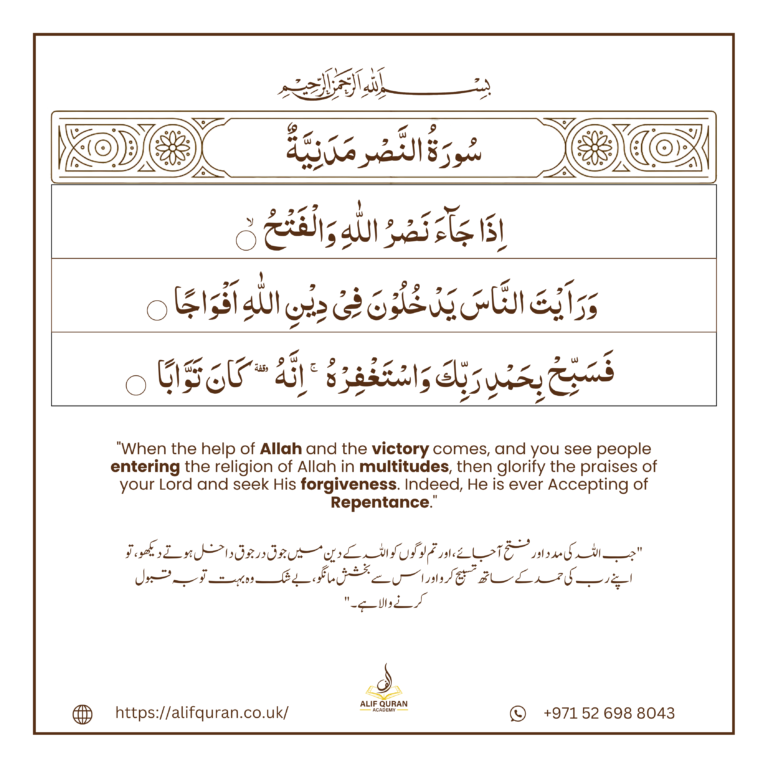 بِسْمِ اللهِ الرَّحْمٰنِ الرَّحِيْمِ
سُورَةُ النَّصْرِ مَدَنِيَّةٌ
اِذَا جَآءَ نَصْرُ اللّٰهِ وَالْفَتْحُ ۙ
وَرَاَيْتَ النَّاسَ يَدْخُلُوْنَ فِىْ دِيْنِ اللّٰهِ اَفْوَاجًا
فَسَبِّحْ بِحَمْدِ رَبِّكَ وَاسْتَغْفِرْهُ ۚ اِنَّهُ وقفة كَانَ تَوَّابًا
"When the help of Allah and the victory comes, and you see people
entering the religion of Allah in multitudes, then glorify the praises of
your Lord and seek His forgiveness. Indeed, He is ever Accepting of
Repentance."
"جب اللہ کی مدد اور فتح آ جائے، اور تم لوگوں کو اللہ کے دین میں جوق در جوق داخل ہوتے دیکھو، تو
اپنے رب کی حمد کے ساتھ تسبیح کرو اور اس سے بخشش مانگو، بے شک وہ بہت توبہ قبول
کرنے والا ہے۔"
ALIF QURAN
ACADEMY
https://alifquran.co.uk/
+971 52 698 8043